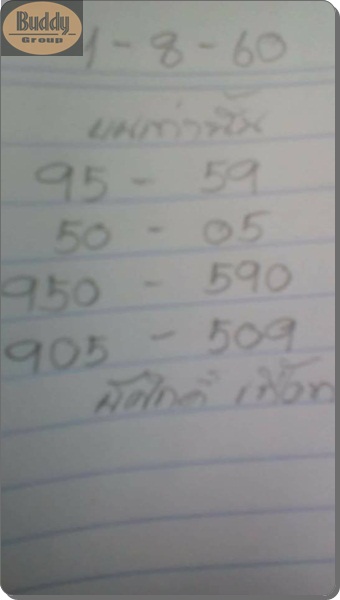 Buddy
Group
1-8-60
บนเท่านั้น
95 - 59
50 - 05
950 - 590
905 - 509